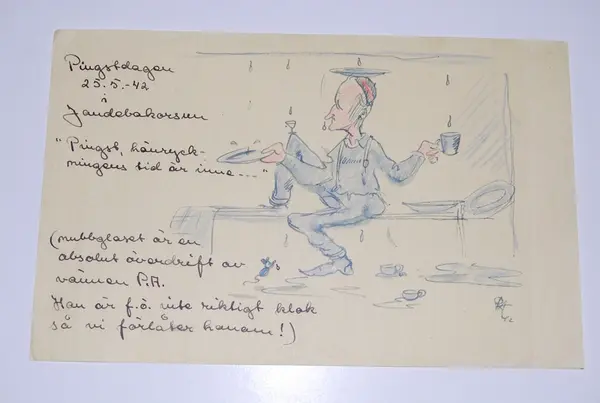 Pingstdagen
25.5.-42
i
"Pingst, hänryck-
mingens tid är inne...."
(nubbglaset är en
absolut överdrift av
vännen P.A.
Han är f.ö. inte riktigt klok
så vi förlåter honom!)